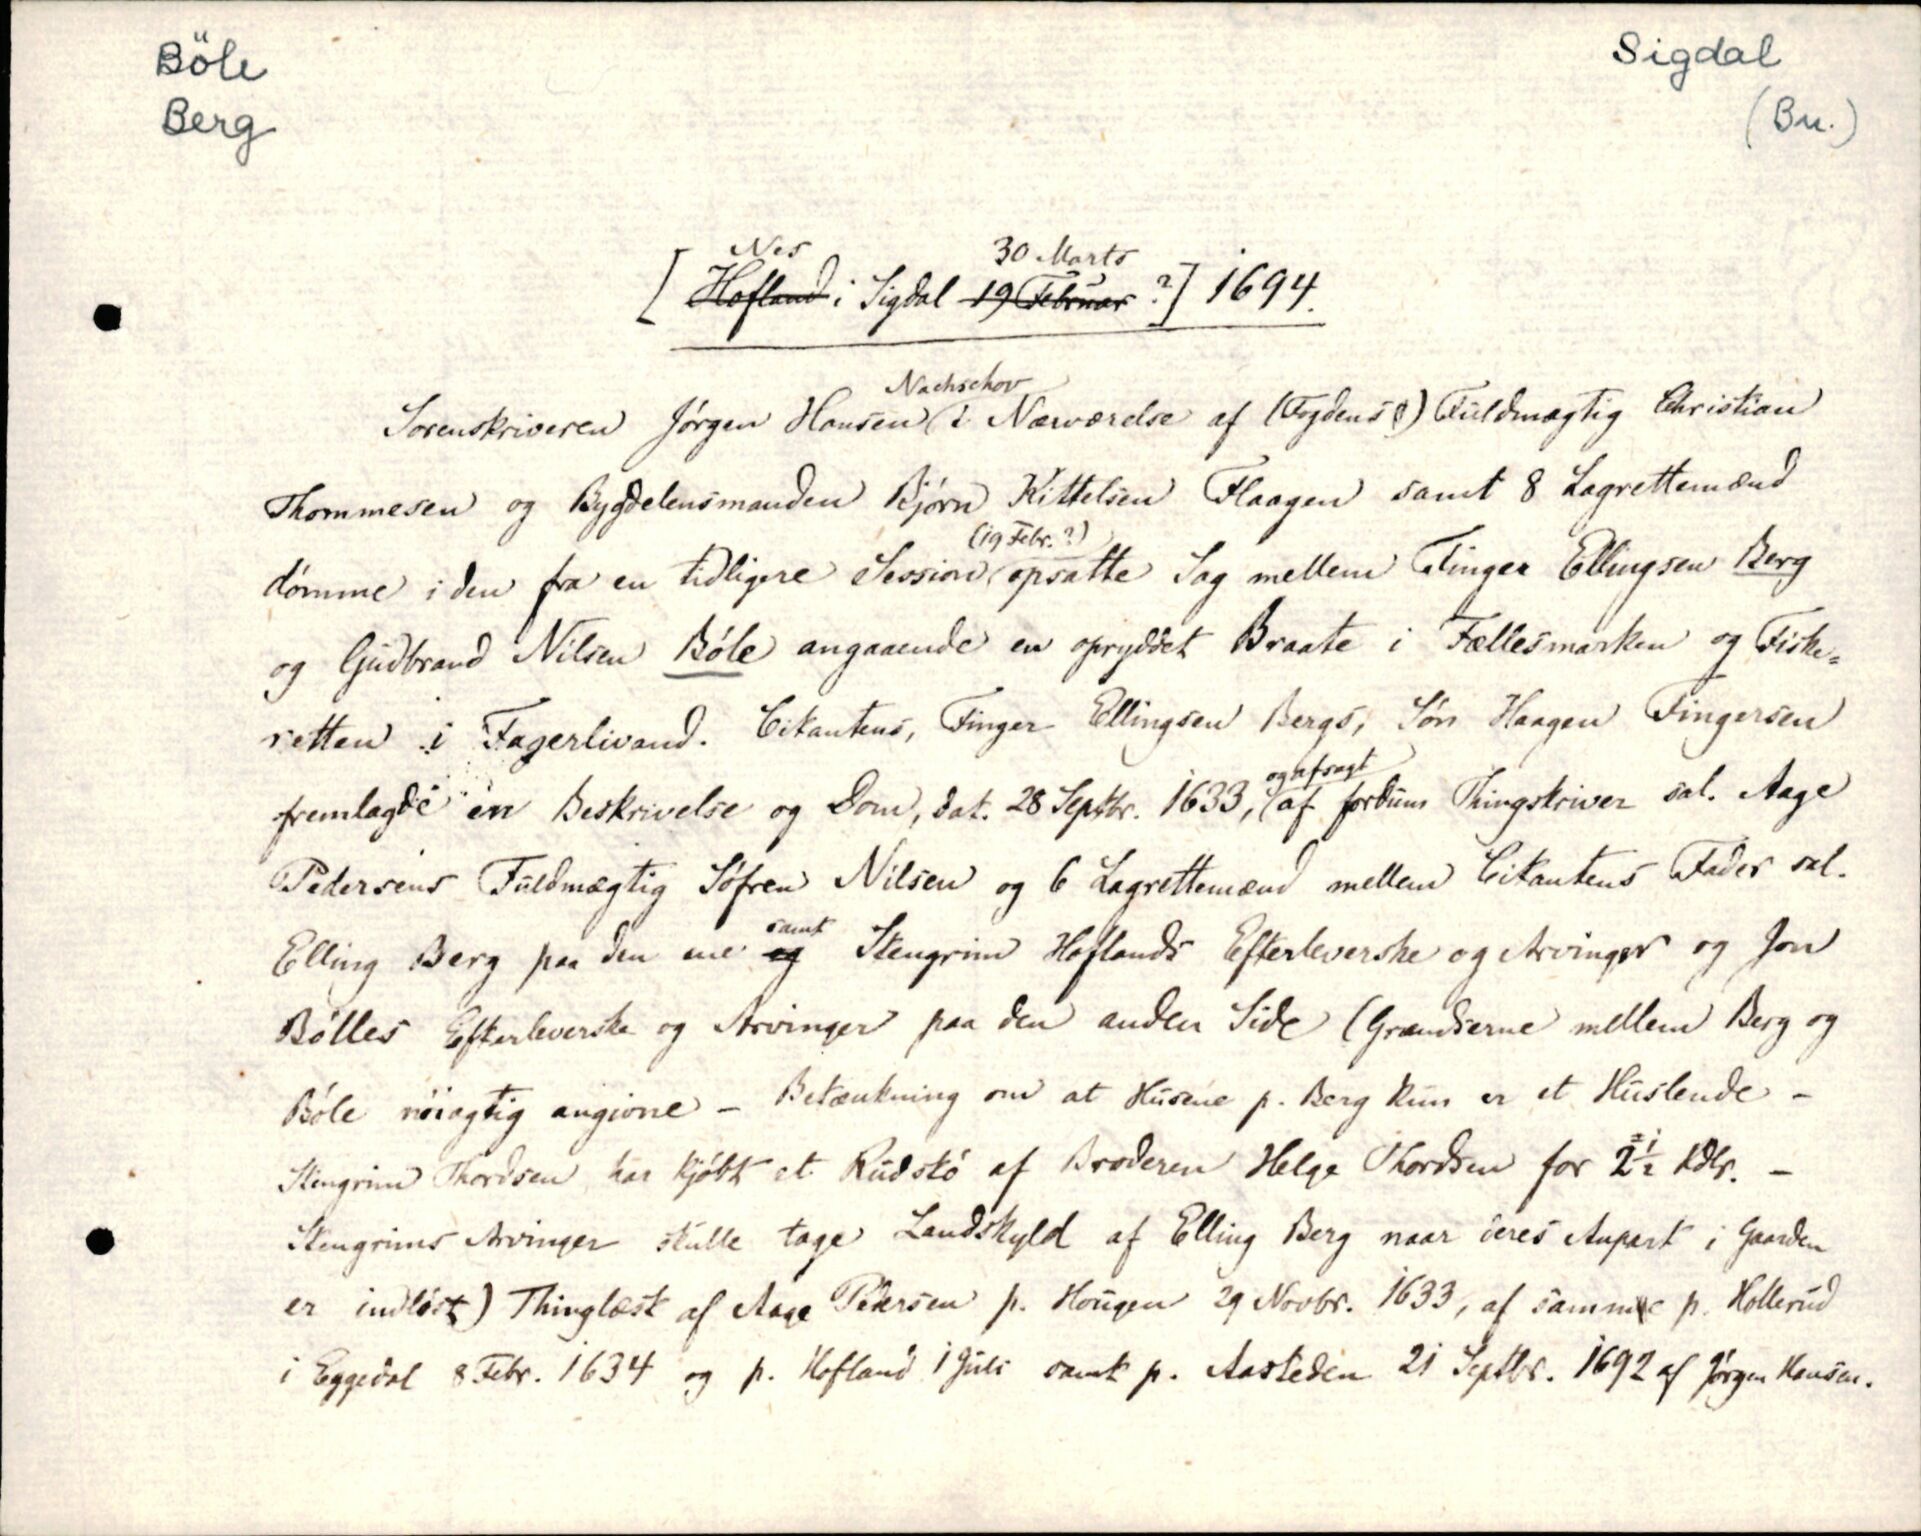 Böle
Berg
Sigdal
(Bu.)
Nes 30 Marts
[Hofland i Sigdal 19 Februar ?] 1694.
Nachschov
Sorenskriveren Jörgen Hansen (i Nærværelse af (Fogdens?) Fuldmægtig Christian
Thommesen og Bygdelensmanden Björn Kittelsen Flaagen samt 8 Lagrettemænd
(19 Febr. ?)
dömme i den fra en tidligere Session opsatte Sag mellem Finger Ellingsen Berg
og Gudbrand Nilsen Böle angaaende en opryddet Braate i Fællesmarken og Fiske=
retten i Fagerlivand. Citantens, Finger Ellingsen Bergs, Sön Haagen Fingersen
og afsagt
fremlagde en Beskrivelse og Dom, dat. 28 Septbr. 1633, af fordum Thingskriver sal. Aage
Pedersens Fuldmægtig Söfren Nilsen og 6 Lagrettemænd mellem Citantens Fader sal.
samt
Elling Berg paa den ene og Stengrim Hoflands Efterleverske og Arvinger og Jon
Bölles Efterleverske og Arvinger paa den anden Side (Grændserne mellem Berg og
Böle nöiagtig angivne - Betænkning om at Husene p. Berg kun er et Huslende -
Stengrim Thordsen har kjöbt et Rudskö af Broderen Helge Thordsen for 2½ Rdlr. -
Stengrims Arvinger skulle tage Landskyld af Elling Berg naar deres Anpart i Gaarden
er indlöst) Thinglæst af Aage Pedersen p. Hougen 29 Novbr. 1633, af samme p. Hollerud
i Eggedal 8 Febr. 1634 og p. Hofland 1 Juli samt p. Aasteden 21 Septbr. 1692 af Jörgen Hansen.